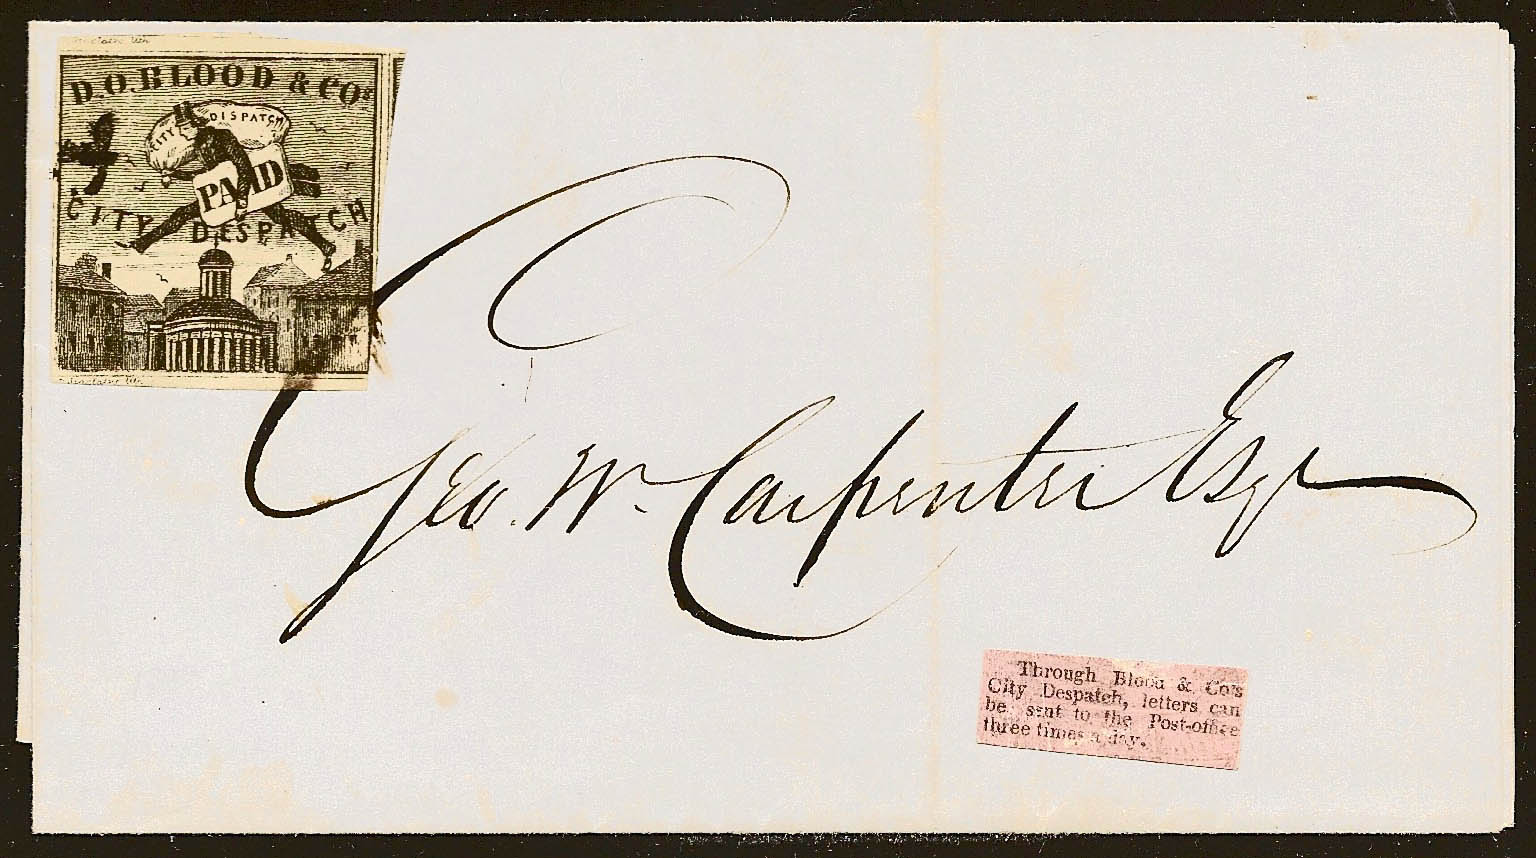 D.O.BLOOD & COs
CITY DISPATCH
PAID
CITY DESPATCH
Sinclairs Lith
Geo. W. Carpenter Esqr
Through Blood & Co's
City Despatch, letters can
be sent to the Post-office
three times a day.